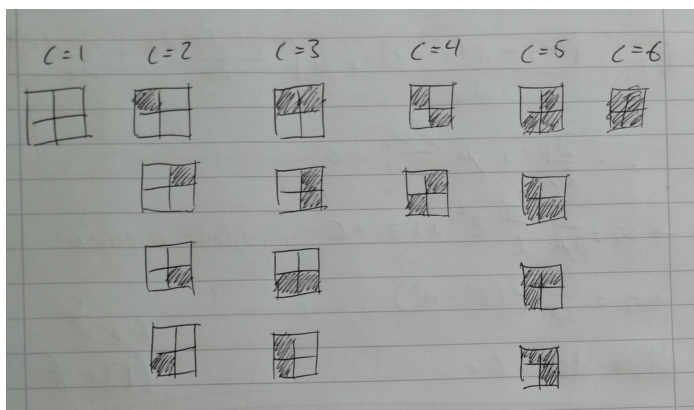 C=1 C=2 C=3 C=4 C=5 C=6